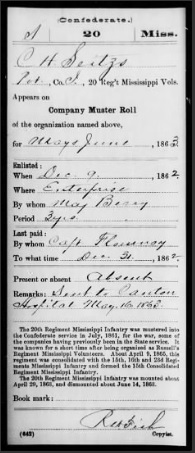 (Confederate.)
S 20 Miss.
C H Seitzs
Pvt, Co. I, 20 Reg't Mississippi Vols.
Appears on
Company Muster Roll
of the organization named above,
for May & June, 1863.
Enlisted:
When Dec 9, 1862
Where Enterprise
By whom Maj Berry
Period 3 yrs
Last paid:
By whom Capt Flournoy
To what time Dec 31, 1862.
Present or absent Absent
Remarks: Sent to Canton
Hospital May 16 1863.
The 20th Regiment Mississippi Infantry was mustered into
the Confederate service in July, 1861, for the war, some of the
companies having previously been in the State service. It
was known for a short time after being organized as Russell's
Regiment Mississippi Volunteers. About April 9, 1865, this
regiment was consolidated with the 15th, 16th and 23d Regi-
ments Mississippi Infantry and formed the 15th Consolidated
Regiment Mississippi Infantry.
The 20th Regiment Mississippi Infantry was mounted about
April 29, 1863, and dismounted about June 14, 1863.
Book mark:
(642) Copyist.